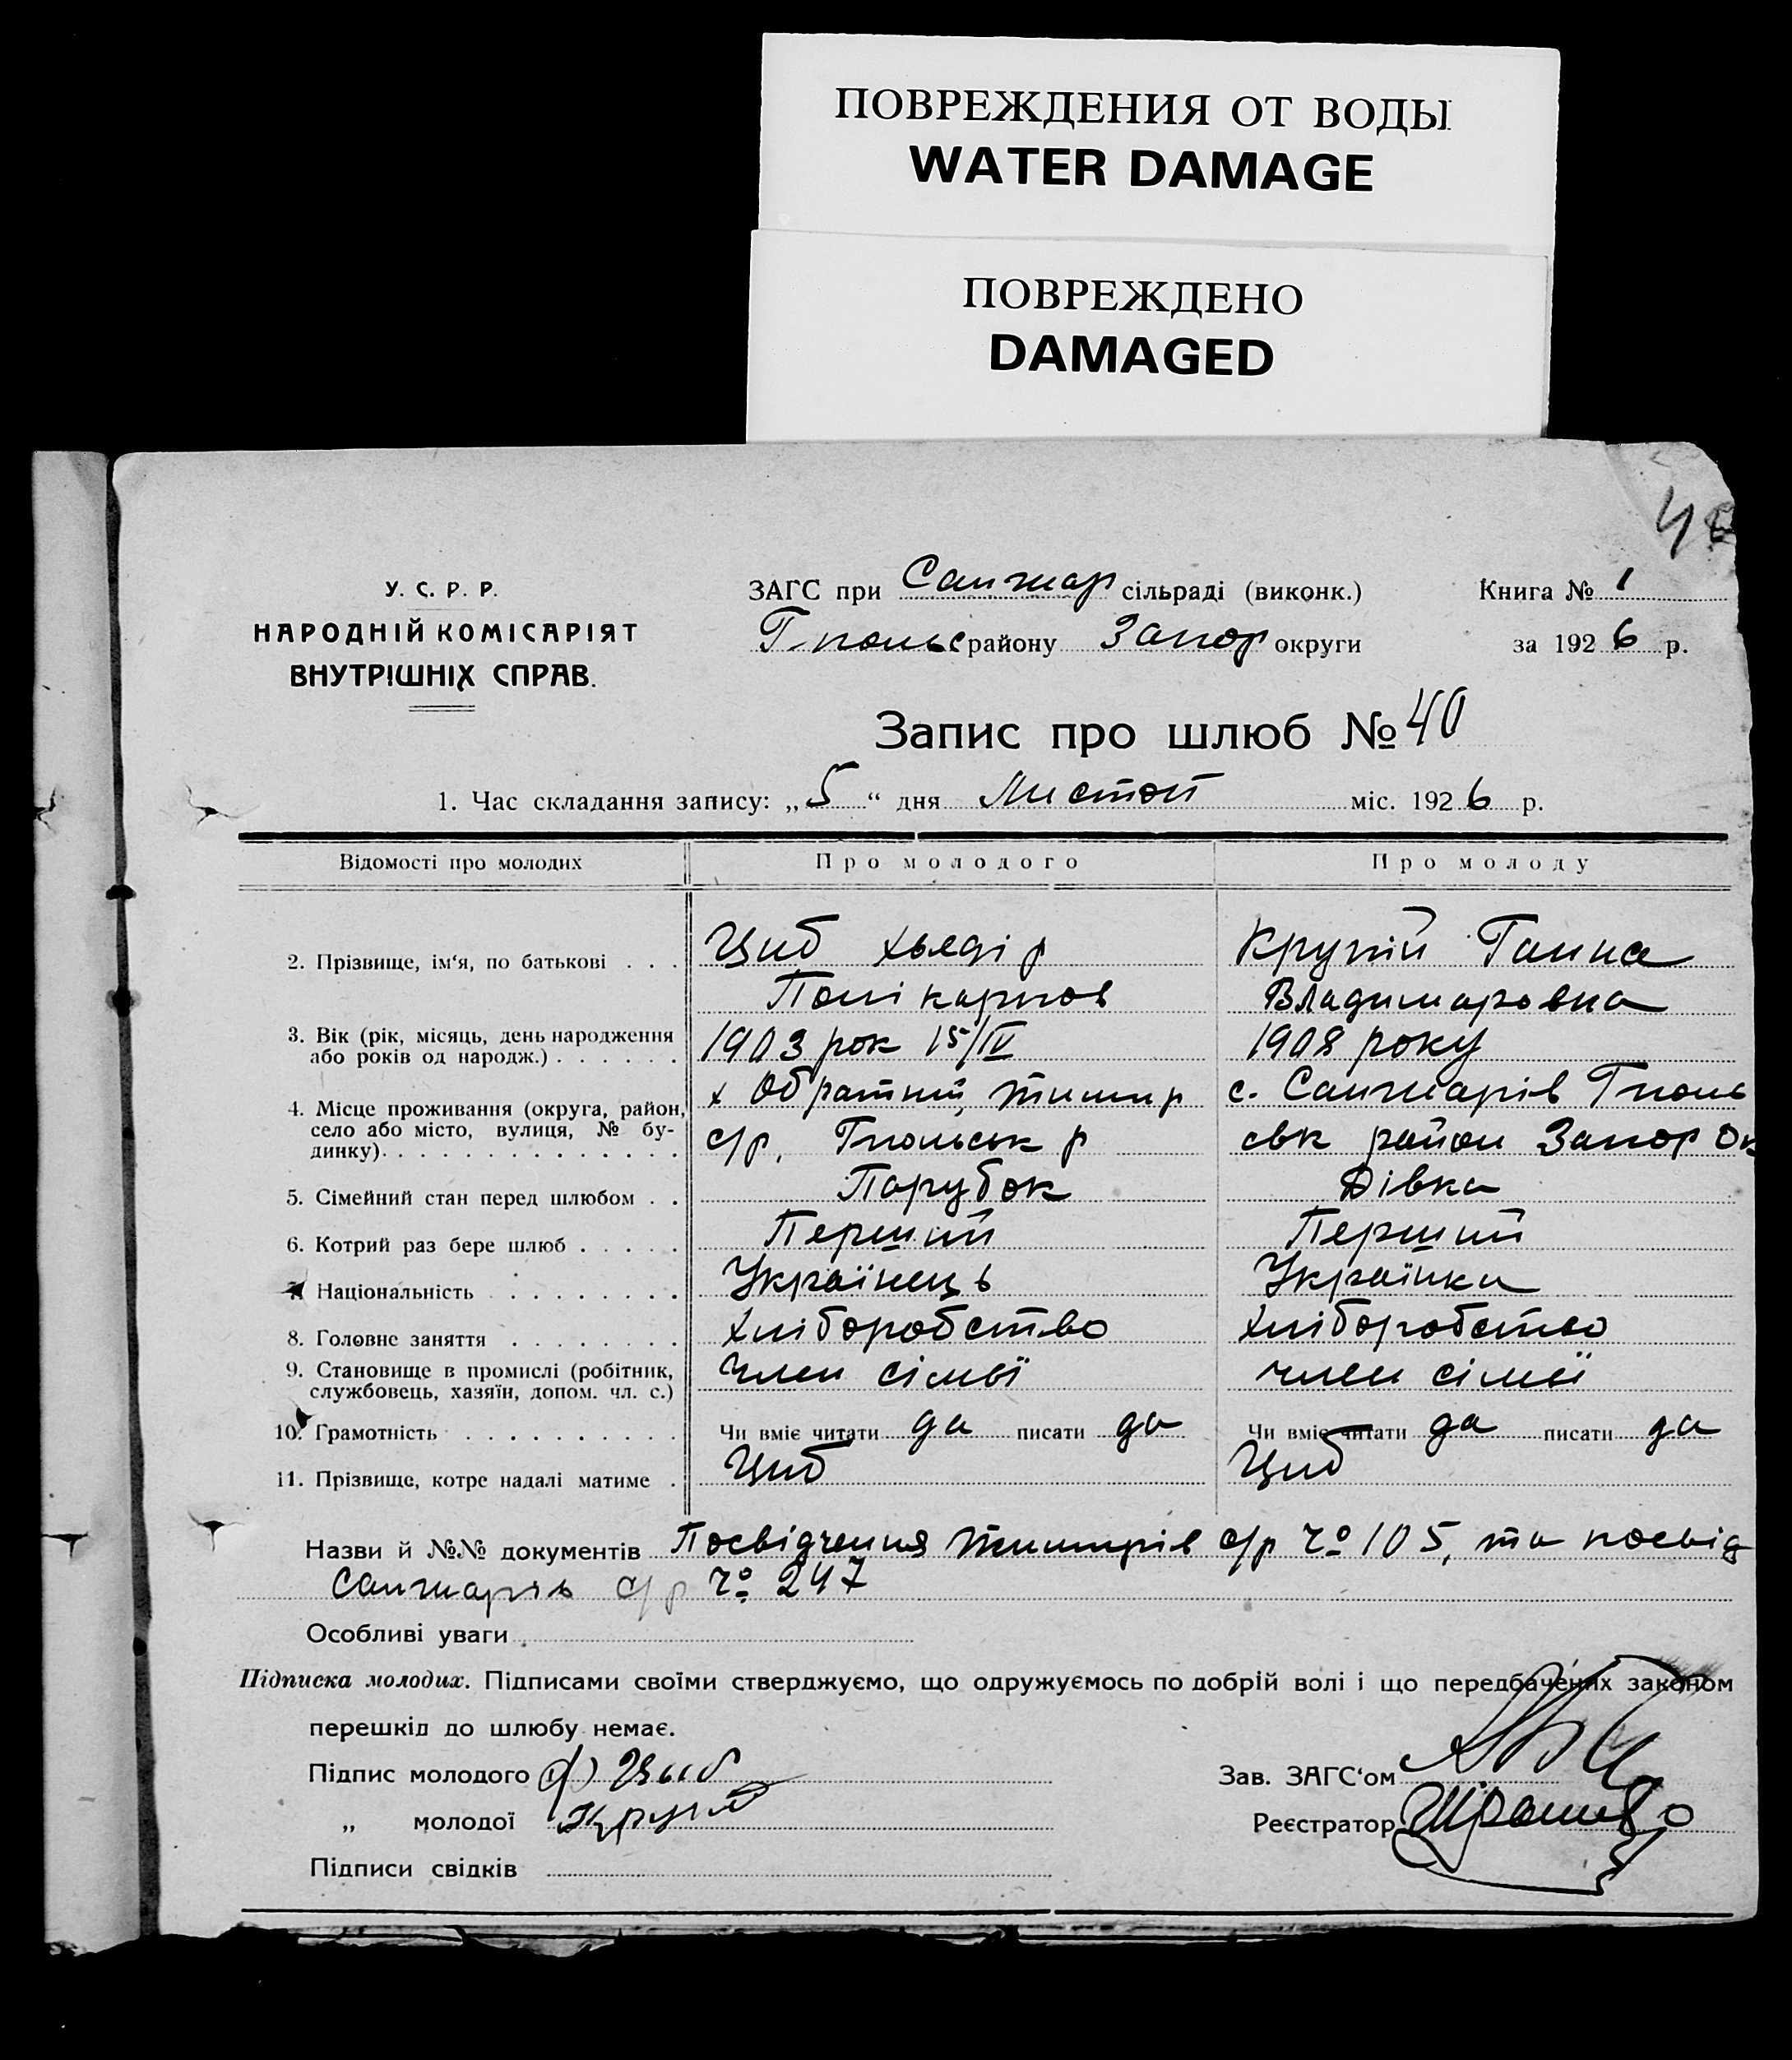 ПОВРЕЖДЕНИЯ ОТ ВОДЫ
WATER DAMAGE
ПОВРЕЖДЕНО
DAMAGED
У. С. Р. Р.
НАРОДНІЙ КОМІСАРІЯТ
ВНУТРІШНІХ СПРАВ.
ЗАГС при Санжар сільраді (виконк.)
Г-польс району Запор округи
Книга № 1
за 1926 р.
Запис про шлюб № 40
1. Час складання запису: „5“ дня Листоп міс. 1926 р.
Відомості про молодих Про молодого Про молоду
2. Прізвище, ім‘я, по батькові . . . Циб Хведір Крупій Ганна
Полікарпов Владимировна
3. Вік (рік, місяць, день народження
або років од народж.) . . . . . . 1903 рок 15/IV 1908 року
4. Місце проживання (округа, район, х Обратний с. Санжарів Гполь
село або місто, вулиця, № бу-
динку) . . . . . . . . . . . . . . с/р, Гпольськ р свк район Запор Ок
5. Сімейний стан перед шлюбом . . Парубок Дівка
6. Котрий раз бере шлюб . . . . . Перший Перший
7. Національність . . . . . . . . . Українець Українка
8. Головне заняття . . . . . . . . Хліборобство Хліборобство
9. Становище в промислі (робітник,
службовець, хазяїн, допом. чл. с.) Член сімьї член сімьї
10. Грамотність . . . . . . . . . . Чи вміє читати да писати да Чи вміє читати да писати да
11. Прізвище, котре надалі матиме . Циб Циб
Назви й №№ документів Посвідчення с/р чо 105, та посвід
Санжарів с/р чо 247
Особливі уваги
Підписка молодих. Підписами своїми стверджуємо, що одружуємось по добрій волі і що передбачених законом
перешкід до шлюбу немає.
Підпис молодого Ф Цыб
„ молодої Круп
Підписи свідків
Зав. ЗАГС‘ом
Реєстратор